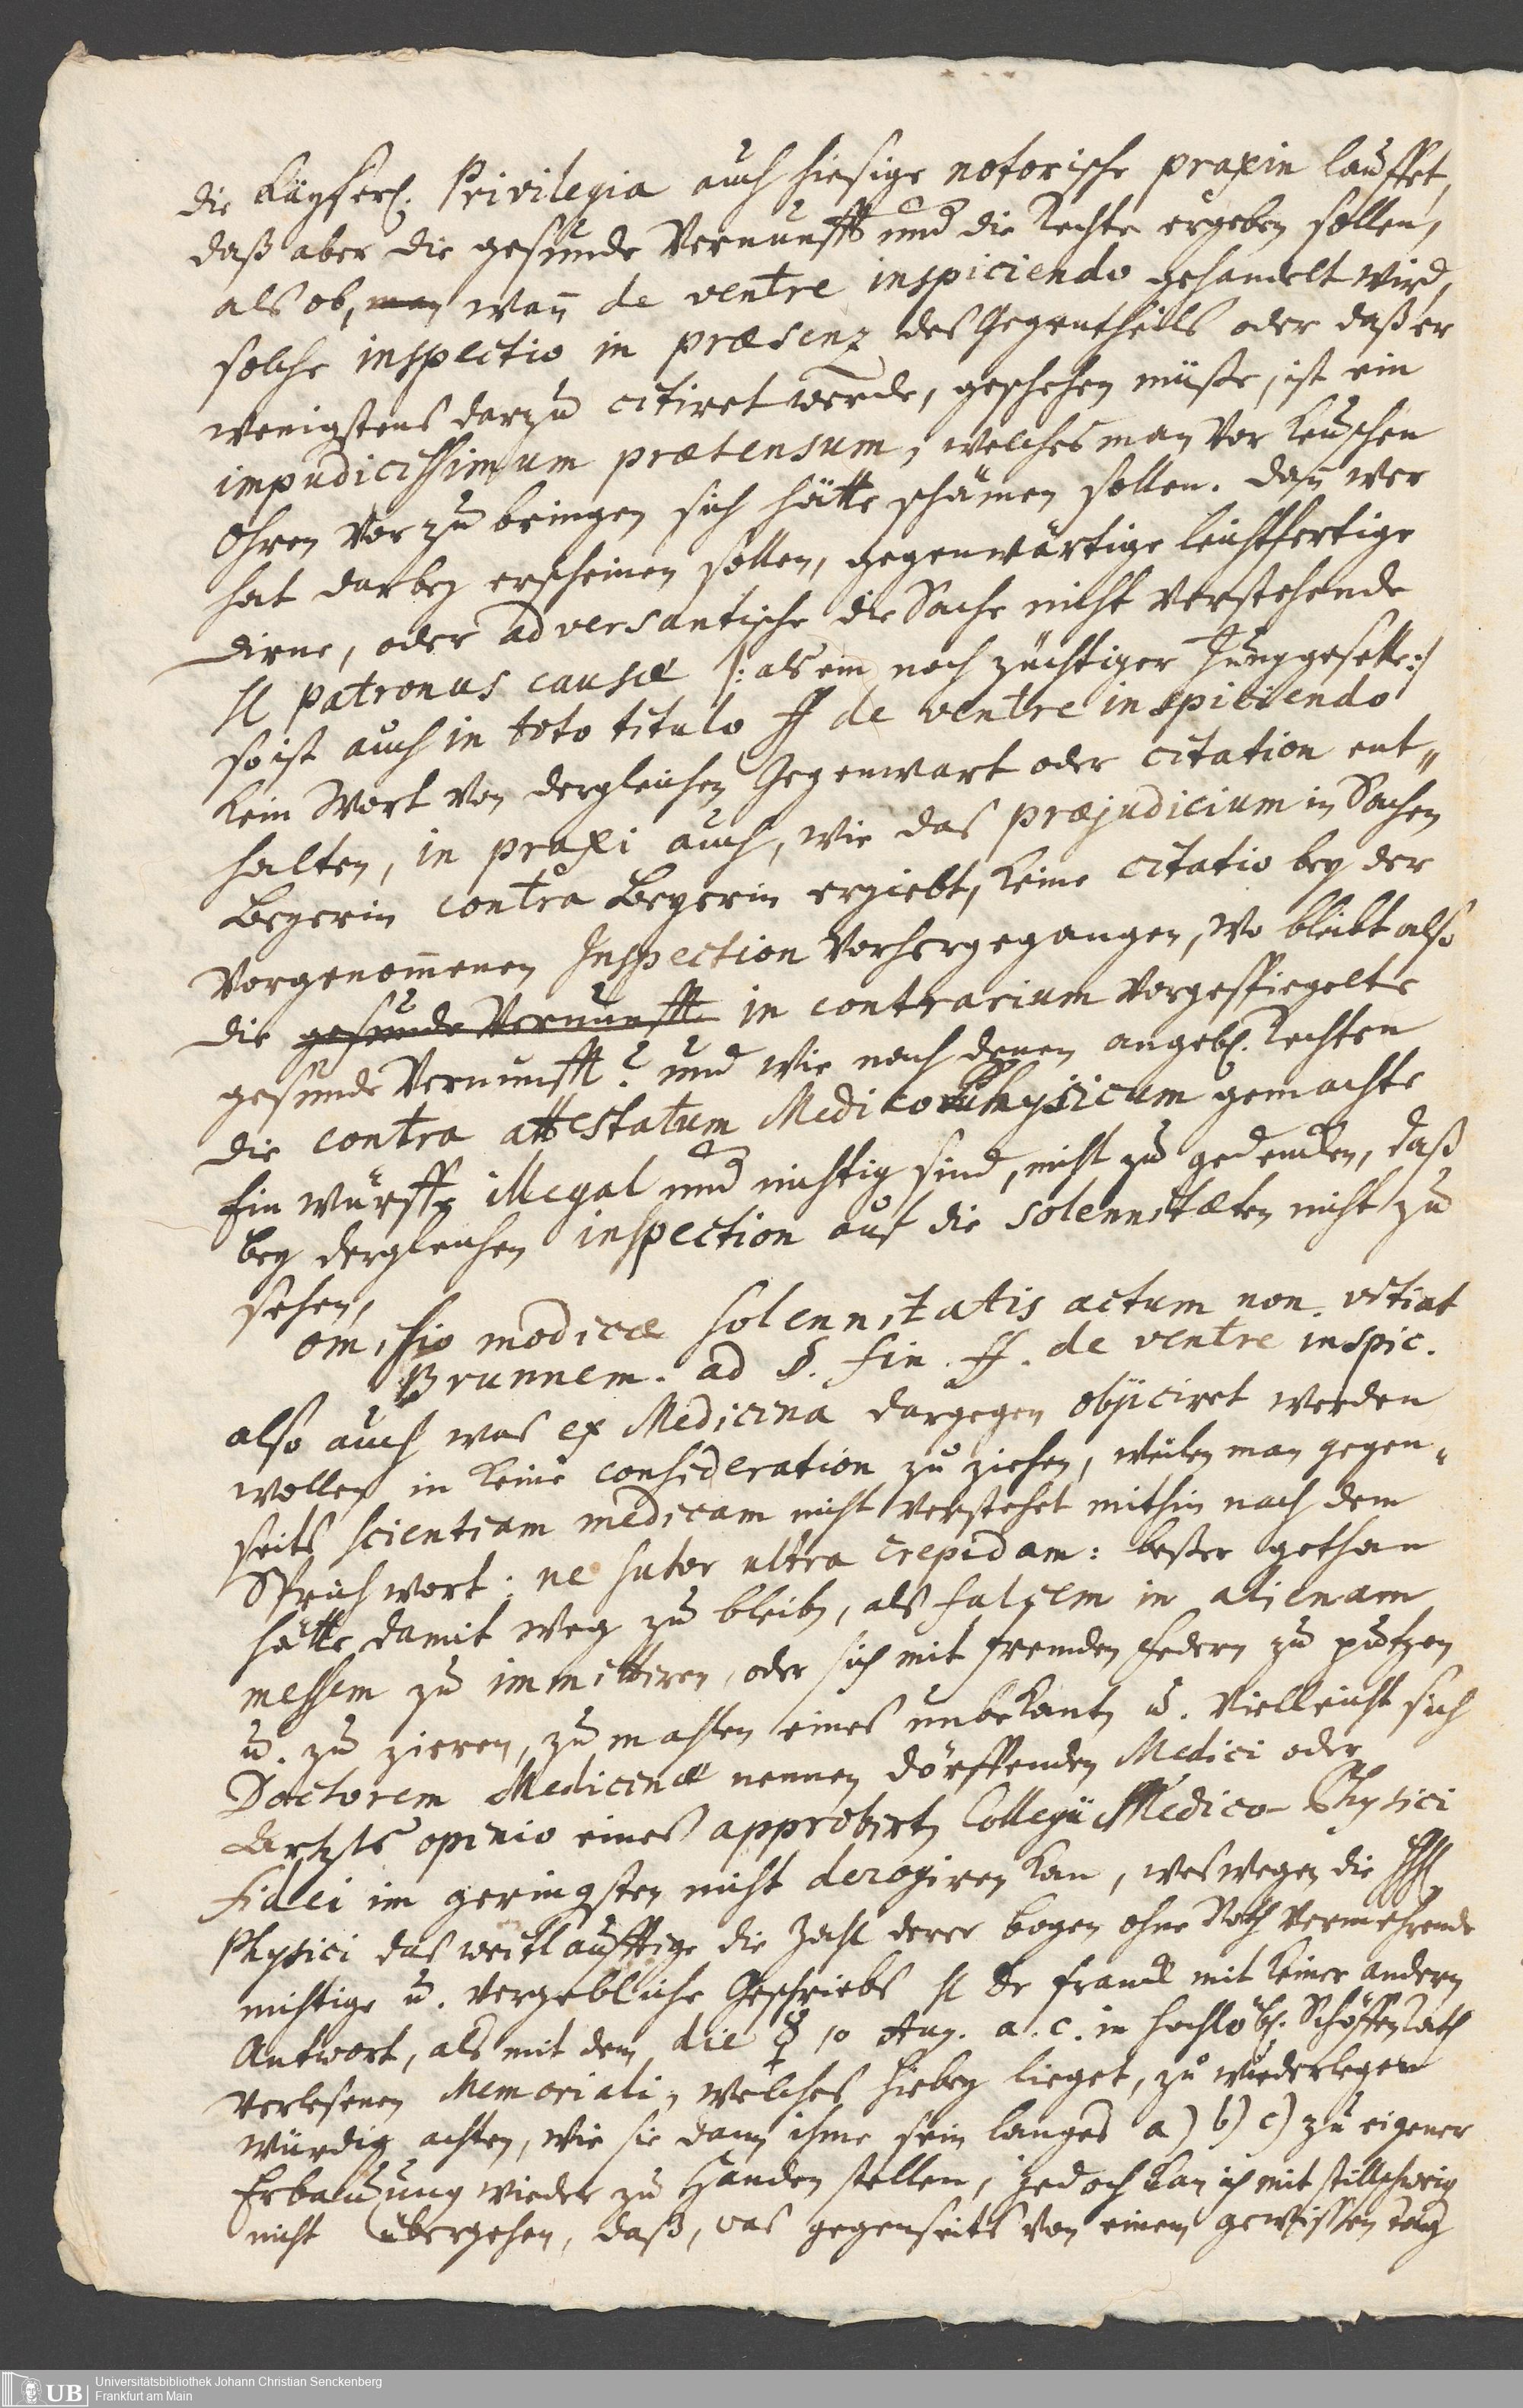 die Käyserl. Privilegia auch hiesige notorische praxin lauffet,
daß aber die gesunde Vernunfft und die Rechte ergeben sollen,
als ob, man wañ de ventre inspiciendo gehandelt wird,
solche inspectio in præsenz des Gegentheils oder daß er
wenigstens darzu citiret werde, geschehen müße, ist ein
impudicissimum prætensum, welches man vor keuschen
Ohren vorzubringen sich hätte schämen sollen. dañ wer
hat darbey erscheinen sollen, gegenwärtige leichtfertige
Dirne, oder adversantische die Sache nicht verstehende
H patronus causæ /: als ein noch züchtiger Junggeselle :/
so ist auch in toto titulo ff de ventre inspiciendo
kein Wort von dergleichen Gegenwart oder citation ent„
halten, in praxi auch, wie das præjudicium in Sachen
Beyerin contra Beyerin ergiebt, keine citatio bey der
vorgenom̄enen Inspection vorhergegangen, wo bleibt also
die gesunde Vernunfft in contrarium vorgespiegelte
gesunde Vernunfft? und wie nach denen angebl. Rechten
die contra attestatum Medico physicum gemachte
Einwürffe illegal und nichtig sind, nicht zu gedencken, daß
bey dergleichen inspection auf die solennitæten nicht zu
sehen,
omissio modicæ solennitatis actum non vitiat
Brunnem. ad §. fin. ff. de ventre inspic.
also auch was ex Medicina dargegen objiciret werden
wollen in keine consideration zu ziehen, weilen man gegen„
seits scientiam medicam nicht verstehet mithin nach dem
Sprichwort: ne sutor ultra crepidam: beßer gethan
hätte damit weg zu bleibē, als falcem in alienam
messem zu immittiren, oder sich mit fremden Federn zu putzen
u. zu zieren, zumahlen eines unbekantē u. vielleicht sich
Doctorem Medicinæ nennen dörffenden Medici oder
Artzts opinio eines approbirtē Collegii Medico-Physici
fidei im geringsten nicht derogiren kan, weswegen die HH.
Physici das weitläufftige die Zahl derer bogen ohne Noth vermehrende
nichtige u. vergebliche Geschriebs H Dr Franck mit keiner andern
Antwort, als mit dem die ☿ 10 Aug. a. c. in hochlöbl. Schöffen Rath
verlesenen Memoriali, welches hiebey lieget, zu wiederlegen
würdig achten, wie sie dann ihme sein langes a) b) c) zu eigener
Erbauung wieder zu Handen stellen, jedoch kan ich mit stillschweig
nicht übergehen, daß, was gegenseits von einem gewissen
Universitätsbibliothek Johann Christian Senckenberg
Frankfurt am Main
UB